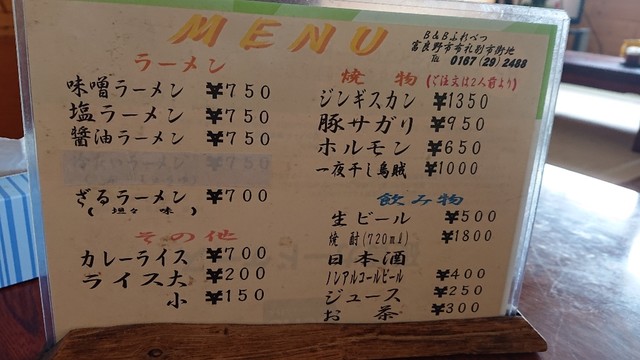 MENU
B&Bふれべつ
富良野市布礼別市街地
TEL 0167(29)2488
ラーメン
味噌ラーメン ¥750
塩ラーメン ¥750
醤油ラーメン ¥750
冷たいラーメン ¥750
ざるラーメン ¥700
(坦々味)
その他
カレーライス ¥700
ライス大 ¥200
小 ¥150
焼物(ご注文は2人前より)
ジンギスカン ¥1350
豚サガリ ¥950
ホルモン ¥650
一夜干し烏賊 ¥1000
飲み物
生ビール ¥500
焼酎(720ml) ¥1800
日本酒
ノンアルコールビール ¥400
ジュース ¥250
お茶 ¥300